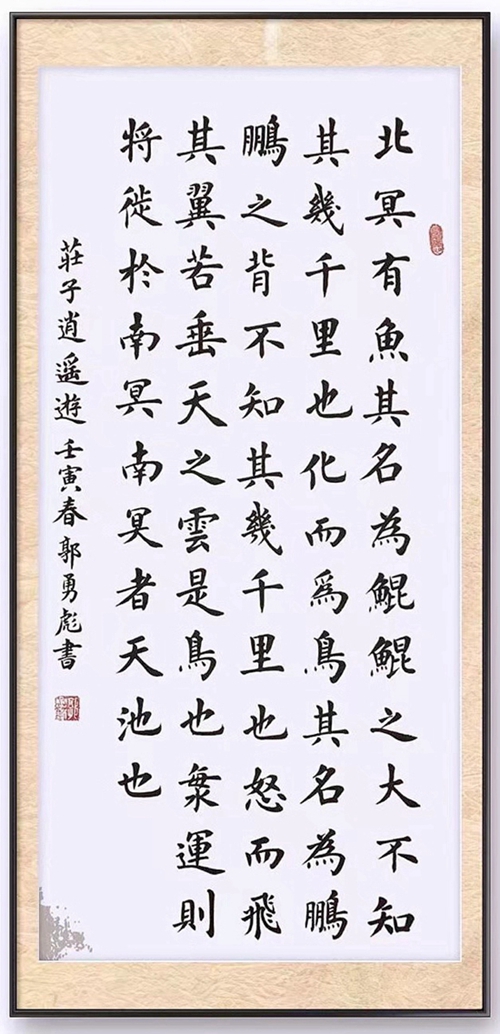 北冥有魚其名為鯤鯤之大不知
其幾千里也化而爲鳥其名為鵬
鵬之背不知其幾千里也怒而飛
其翼若垂天之雲是鳥也海運則
将徙於南冥南冥者天池也
莊子逍遥遊壬寅春郭勇彪書